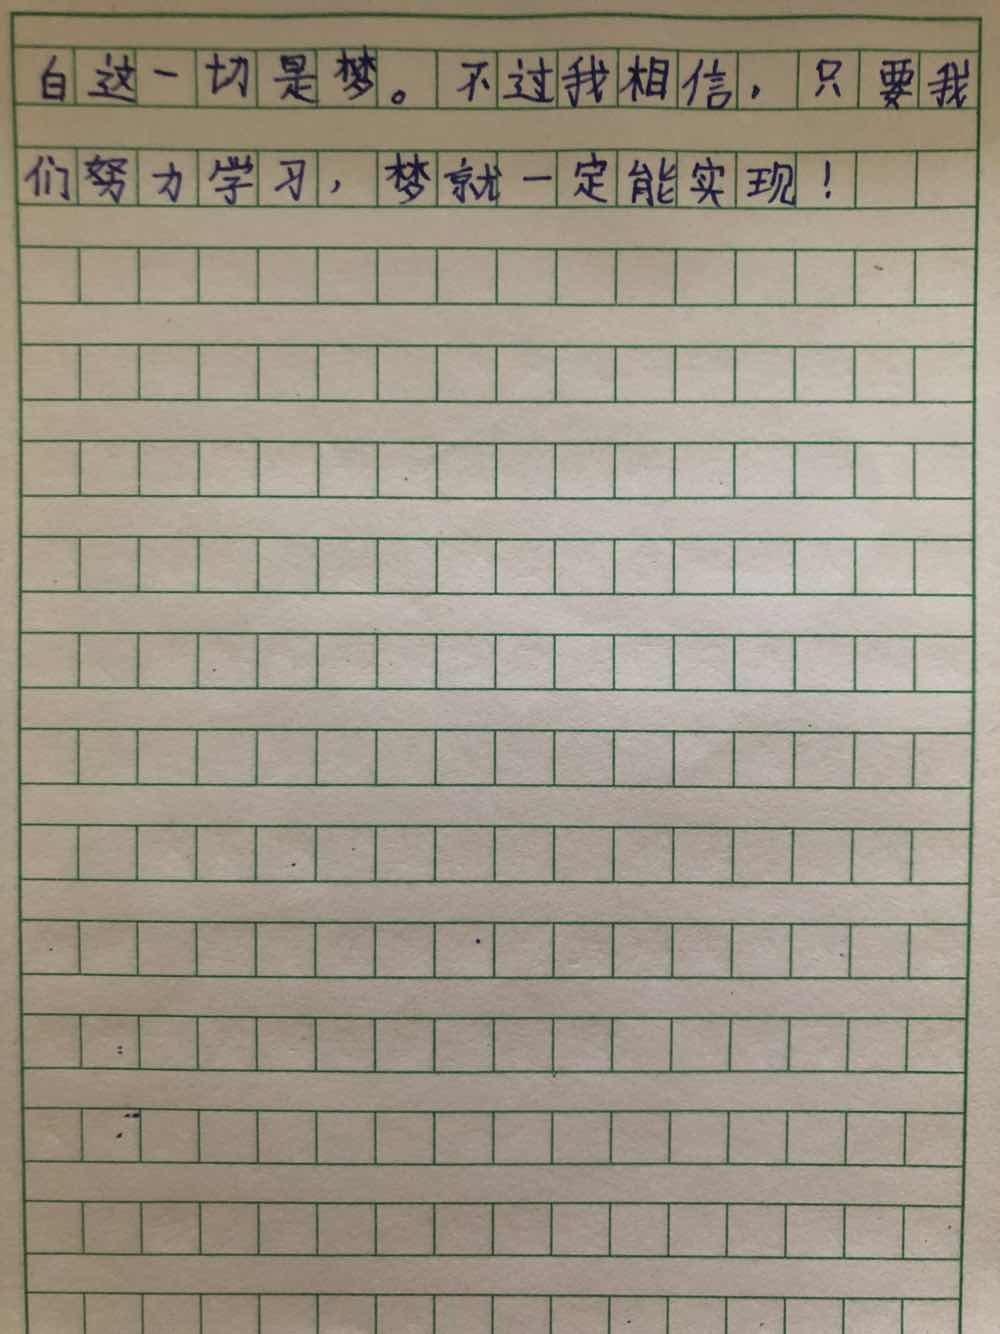 白这一切是梦。不过我相信，只要我
们努力学习，梦就一定能实现！